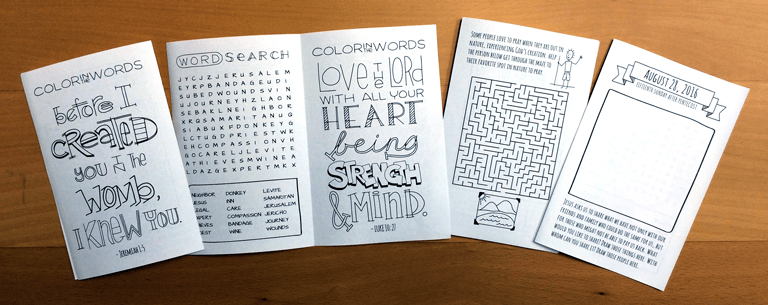 COLOR IN THE WORDS
before I
CREATED
YOU IN THE
WOMB,
I KNEW YOU.
- JEREMIAH 1:5
WORD SEARCH
JYCJZJERUSALEM
EYRPBANDAGEUDI
SUBEDWOUNDSVIN
UJOURNEYHZLAON
SEBAKLNEIGHBOR
XRQSAMARITANUG
SIABUKFDONKEYG
LCTUGDPRIESTWK
EHCOMPASSIONVH
GOCARELJLEVITE
ATHIEVESMWINEA
LDAZGEXPERTMKX
EIGHBOR DONKEY LEVITE
ESUS INN SAMARITAN
EGAL CARE JERUSALEM
XPERT COMPASSION JERICHO
IEVES BANDAGE JOURNEY
IEST WINE WOUNDS
COLOR IN THE WORDS
LOVE THE LORD
WITH ALL YOUR
HEART
being
STRENGTH
& MIND.
- LUKE 10:27
SOME PEOPLE LOVE TO PRAY WHEN THEY ARE OUT IN
NATURE, EXPERIENCING GOD'S CREATION. HELP
THE PERSON BELOW GET THROUGH THE MAZE TO
THEIR FAVORITE SPOT IN NATURE TO PRAY.
AUGUST 28, 2016
FIFTEENTH SUNDAY AFTER PENTECOST
JESUS ASKS US TO SHARE WHAT WE HAVE, NOT ONLY WITH OUR
FRIENDS AND FAMILY WHO COULD DO THE SAME FOR US, BUT
FOR THOSE WHO MIGHT NOT BE ABLE TO PAY US BACK. WHAT
WOULD YOU LIKE TO SHARE? DRAW THOSE THINGS HERE. WITH
WHOM CAN YOU SHARE IT? DRAW THOSE PEOPLE HERE.